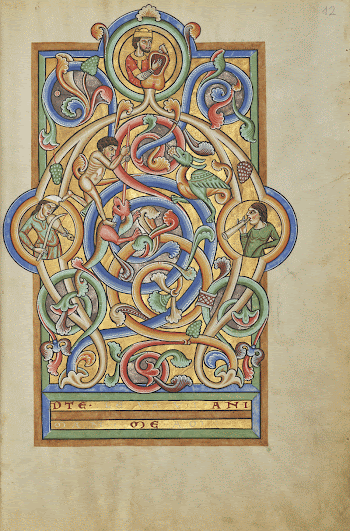 12
DTE· ANI
ME